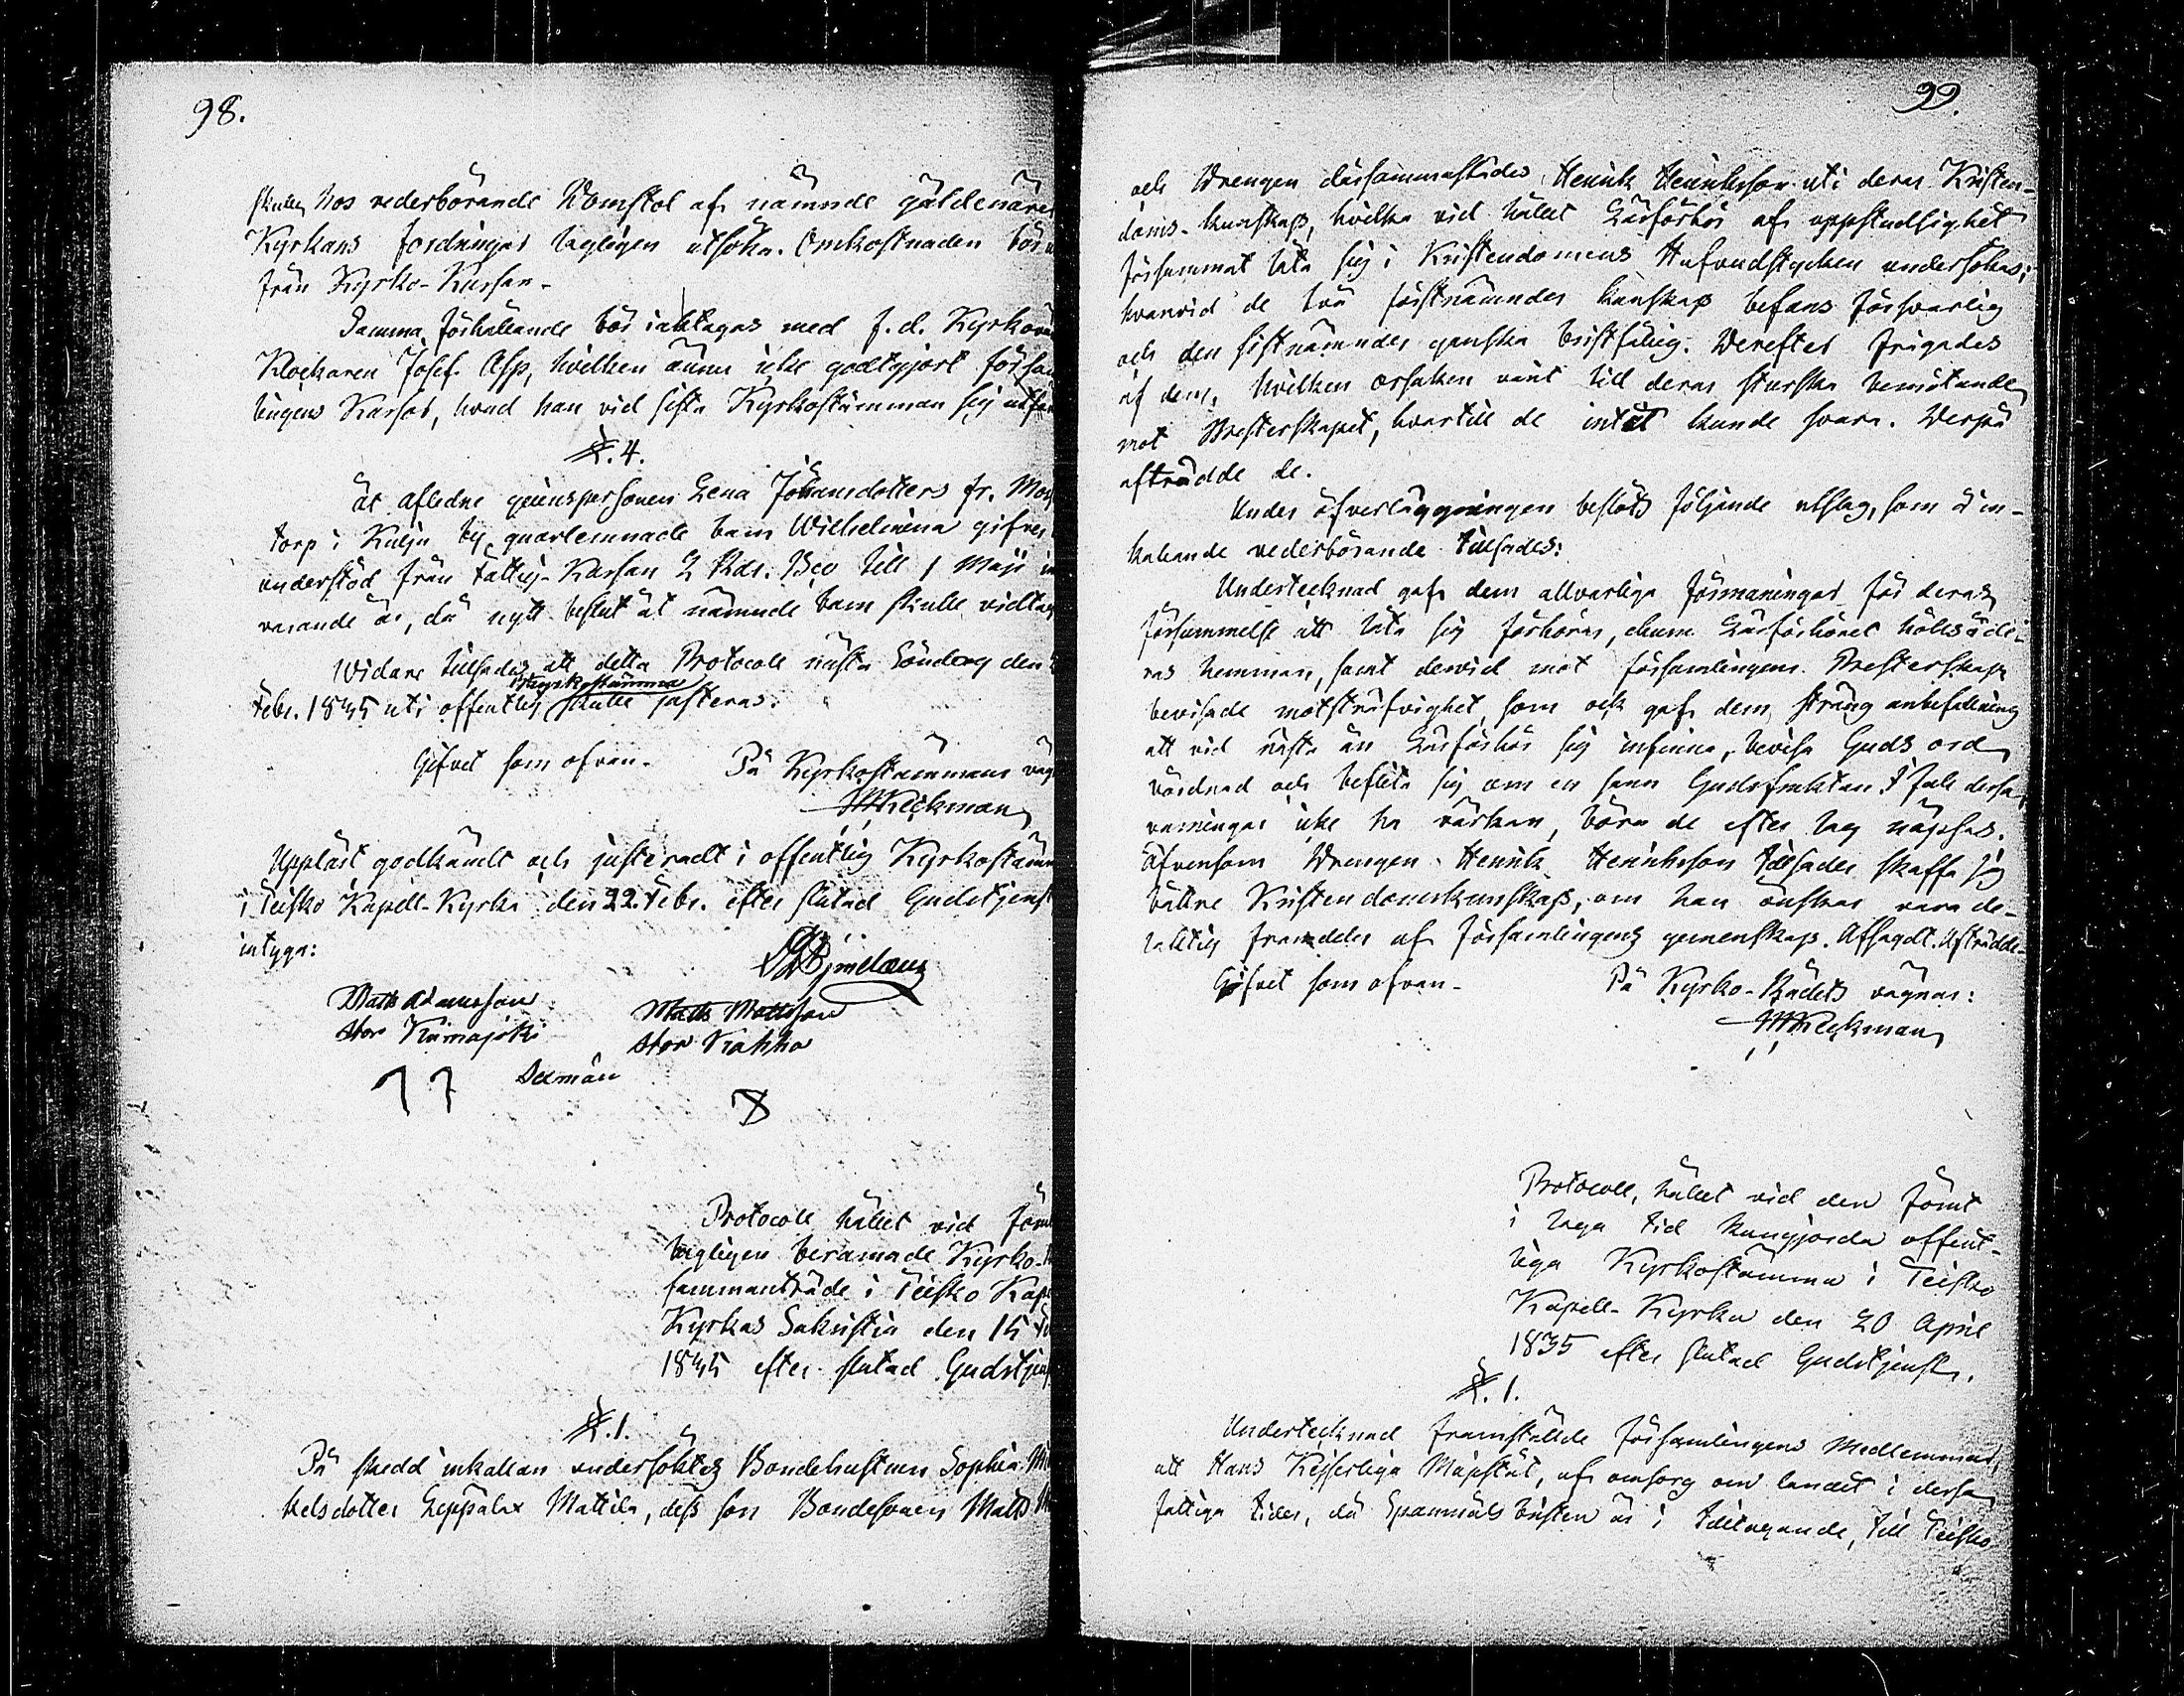 98.
skulle hos vederbörande Domstol af nämnde gäldenärer
Kyrkans fordringar lagligen utsöka. Omkostnaden bör
från Kyrko-Kassan.
Samma förhållande bör iakttagas med f.d. Kyrkovä
Klockaren Josef Asp, hvilken ännu icke godtgjort försam
lingens Kassor, hvad han vid sista Kyrkostämman sig utfäs
§. 4.
Åt aflidne qvinspersonen Lena Johansdotters fr.
torp i Kulju by qvarlemnade barn Wilhelmina gifves
understöd från Fattig-Kassan 2 Rdr. Bco till 1 Maji in
varande år, då nytt beslut åt nämnde barn skulle vidtag
Widare tillsades att detta Protocoll nästa Söndag den
Febr. 1835 uti offentlig Kyrkostämma skulle justeras.
Gifvet som ofvan. På Kyrkostämmans väg
Heckman
Uppläst godkändt och justeradt i offentlig Kyrkostäm
i Teisko Kapell-Kyrka den 22. Febr. efter slutad Gudstjenst
intyga:
Matts Adamsson
stor Kiimajoki
Matts Mattsson
stor Kakko
Sexmän
Protocoll hållet vid förut
lagligen beramade Kyrko-
sammanträde i Teisko Kap
Kyrkas Sakristia den 15
1835 efter slutad Gudstjens
§. 1.
På skedd inkallan undersöktes Bondehustrun Sophia Mi
kelsdotter Seppälä Mattila, dess son Bondesonen Matts
99.
och Drengen dersammastädes Henrik Henriksson uti deras Kristen-
doms-kunskap, hvilka vid hållet Läseförhör af uppstudsighet
försummat låta sig i Kristendomens Hufvudstycken undersökas;
hvarvid de två förstnämndes kunskap befans försvarlig
och den sistnämndes ganska bristfällig. Derefter frågades
af dem, hvilken orsaken varit till deras sturska bemötande
mot Presterskapet, hvartill de intet kunde svara. Derpå
afträdde de.
Under öfverläggningen beslöts följande utslag, som å in-
kallande vederbörande tillsades:
Undertecknad gaf dem allvarliga förmaningar för deras
försummelse att låta sig förhöras, ehuru Läseförhöret hölls å de-
ras hemman, samt dervid mot församlingens Presterskap
bevisade motsträfvighet, som ock gaf dem sträng anbefallning
att vid nästa års Läseförhör sig infinna, bevisa Guds ord
vördnad och beflita sig om en sann Gudsfruktan. I fall dessa
varningar icke ha värkan, böra de efter lag näpsas.
äfvensom Drengen Henrik Henriksson tillsades skaffa sig
bättre Kristendomskunskap, om han önskar vara de-
laktig framdeles af församlingens gemenskap. Afsagdt. Afträdde.
Gifvet som ofvan. På Kyrko-Rådets vägnar:
Heckman
Protocoll, hållet vid den förut
i laga tid kungjorda offent-
liga Kyrkostämma i Teisko
Kapell-Kyrka den 20 April
1835 efter slutad Gudstjenst.
§. 1.
Undertecknad framställde församlingens Medlemmar,
att Hans Kejserliga Majestät, af omsorg om landet i dessa
fattiga tider, då Spannmåls bristen är i tilltagande, till Teisko